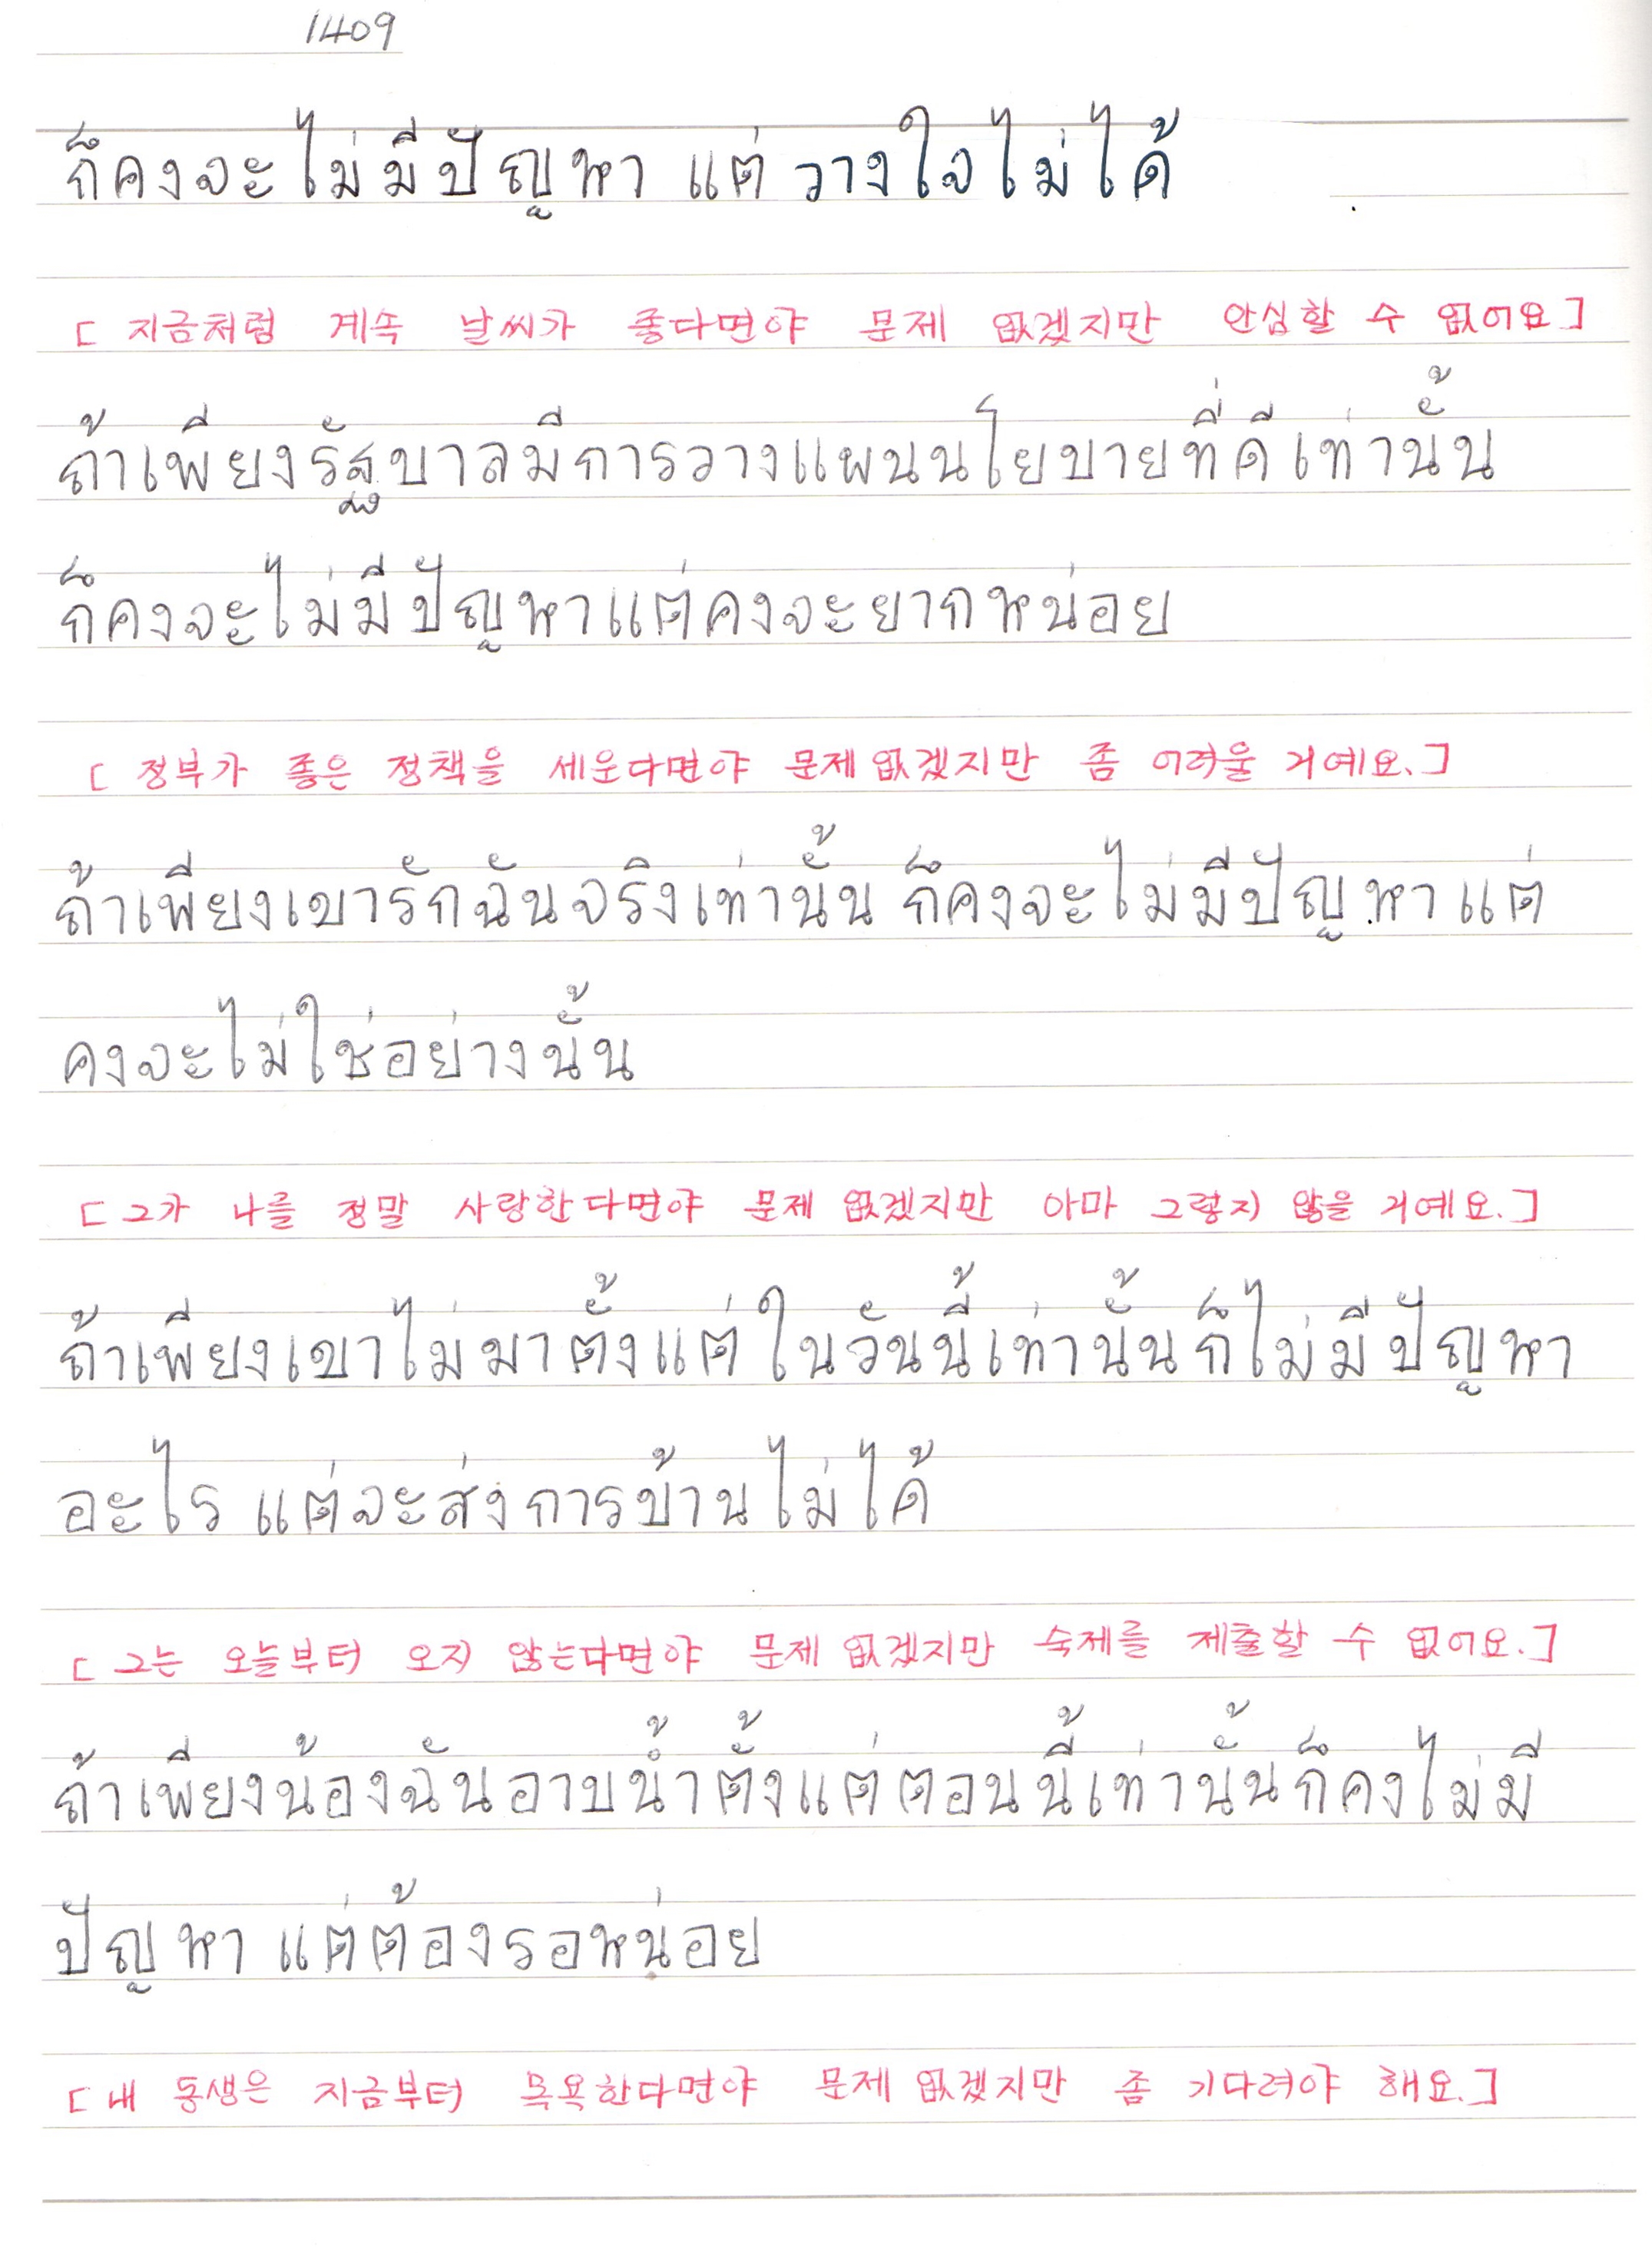 1409
ก็คงจะไม่มีปัญหา แต่ วางใจไม่ได้
[ 지금처럼 계속 날씨가 좋다면야 문제 없겠지만 안심할 수 없어요 ]
ถ้าเพียงรัฐบาลมีการวางแผนนโยบายที่ดีเท่านั้น
ก็คงจะไม่มีปัญหาแต่คงจะยากหน่อย
[ 정부가 좋은 정책을 세운다면야 문제없겠지만 좀 어려울 거예요. ]
ถ้าเพียงเขารักฉันจริงเท่านั้น ก็คงจะไม่มีปัญหาแต่
คงจะไม่ใช่อย่างนั้น
[ 그가 나를 정말 사랑한다면야 문제 없겠지만 아마 그렇지 않을 거예요. ]
ถ้าเพียงเขาไม่มาตั้งแต่ในวันนี้เท่านั้นก็ไม่มีปัญหา
อะไร แต่จะส่งการบ้านไม่ได้
[ 그는 오늘부터 오지 않는다면야 문제 없겠지만 숙제를 제출할 수 없어요. ]
ถ้าเพียงน้องฉันอาบน้ำตั้งแต่ตอนนี้เท่านั้นก็คงไม่มี
ปัญหา แต่ต้องรอหน่อย
[ 내 동생은 지금부터 목욕한다면야 문제 없겠지만 좀 기다려야 해요. ]